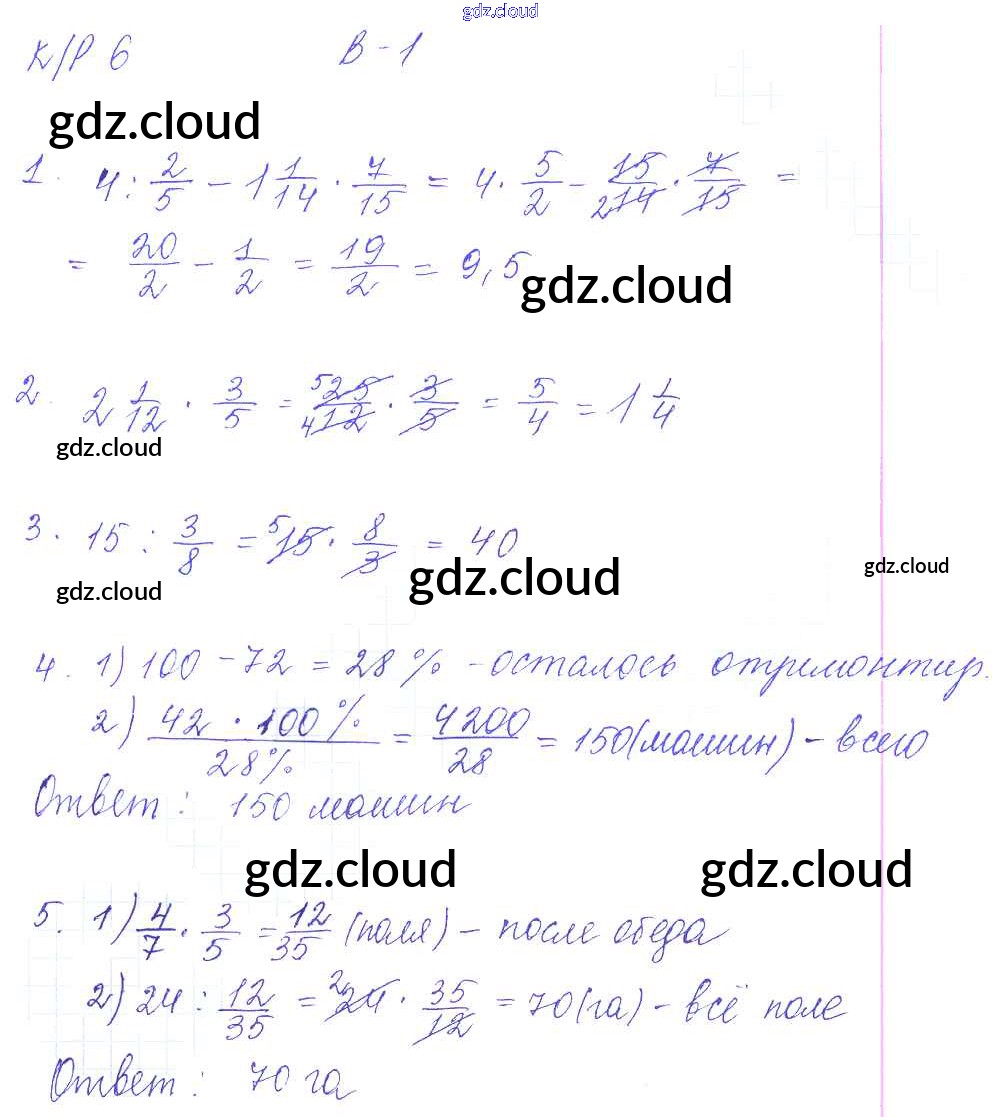 gdz.cloud
К/Р 6 В-1
gdz.cloud
1. 4 : 2/5 - 1 1/14 · 7/15 = 4 · 5/2 - 15/14 2 · 7/15 =
= 20/2 - 1/2 = 19/2 = 9,5
gdz.cloud
2. 2 1/12 · 3/5 = 5 25/12 4 · 3/5 = 5/4 = 1 1/4
gdz.cloud
3. 15 : 3/8 = 5 15 · 8/3 = 40
gdz.cloud gdz.cloud gdz.cloud
4. 1) 100 - 72 = 28 % - осталось отримонтир.
2) 42 · 100 % / 28% = 4200/28 = 150 (машин) - всего
Ответ: 150 машин
gdz.cloud gdz.cloud
5. 1) 4/7 · 3/5 = 12/35 (поля) - после обеда
2) 24 : 12/35 = 2 24 · 35/12 = 70 (га) - всё поле
Ответ: 70 га